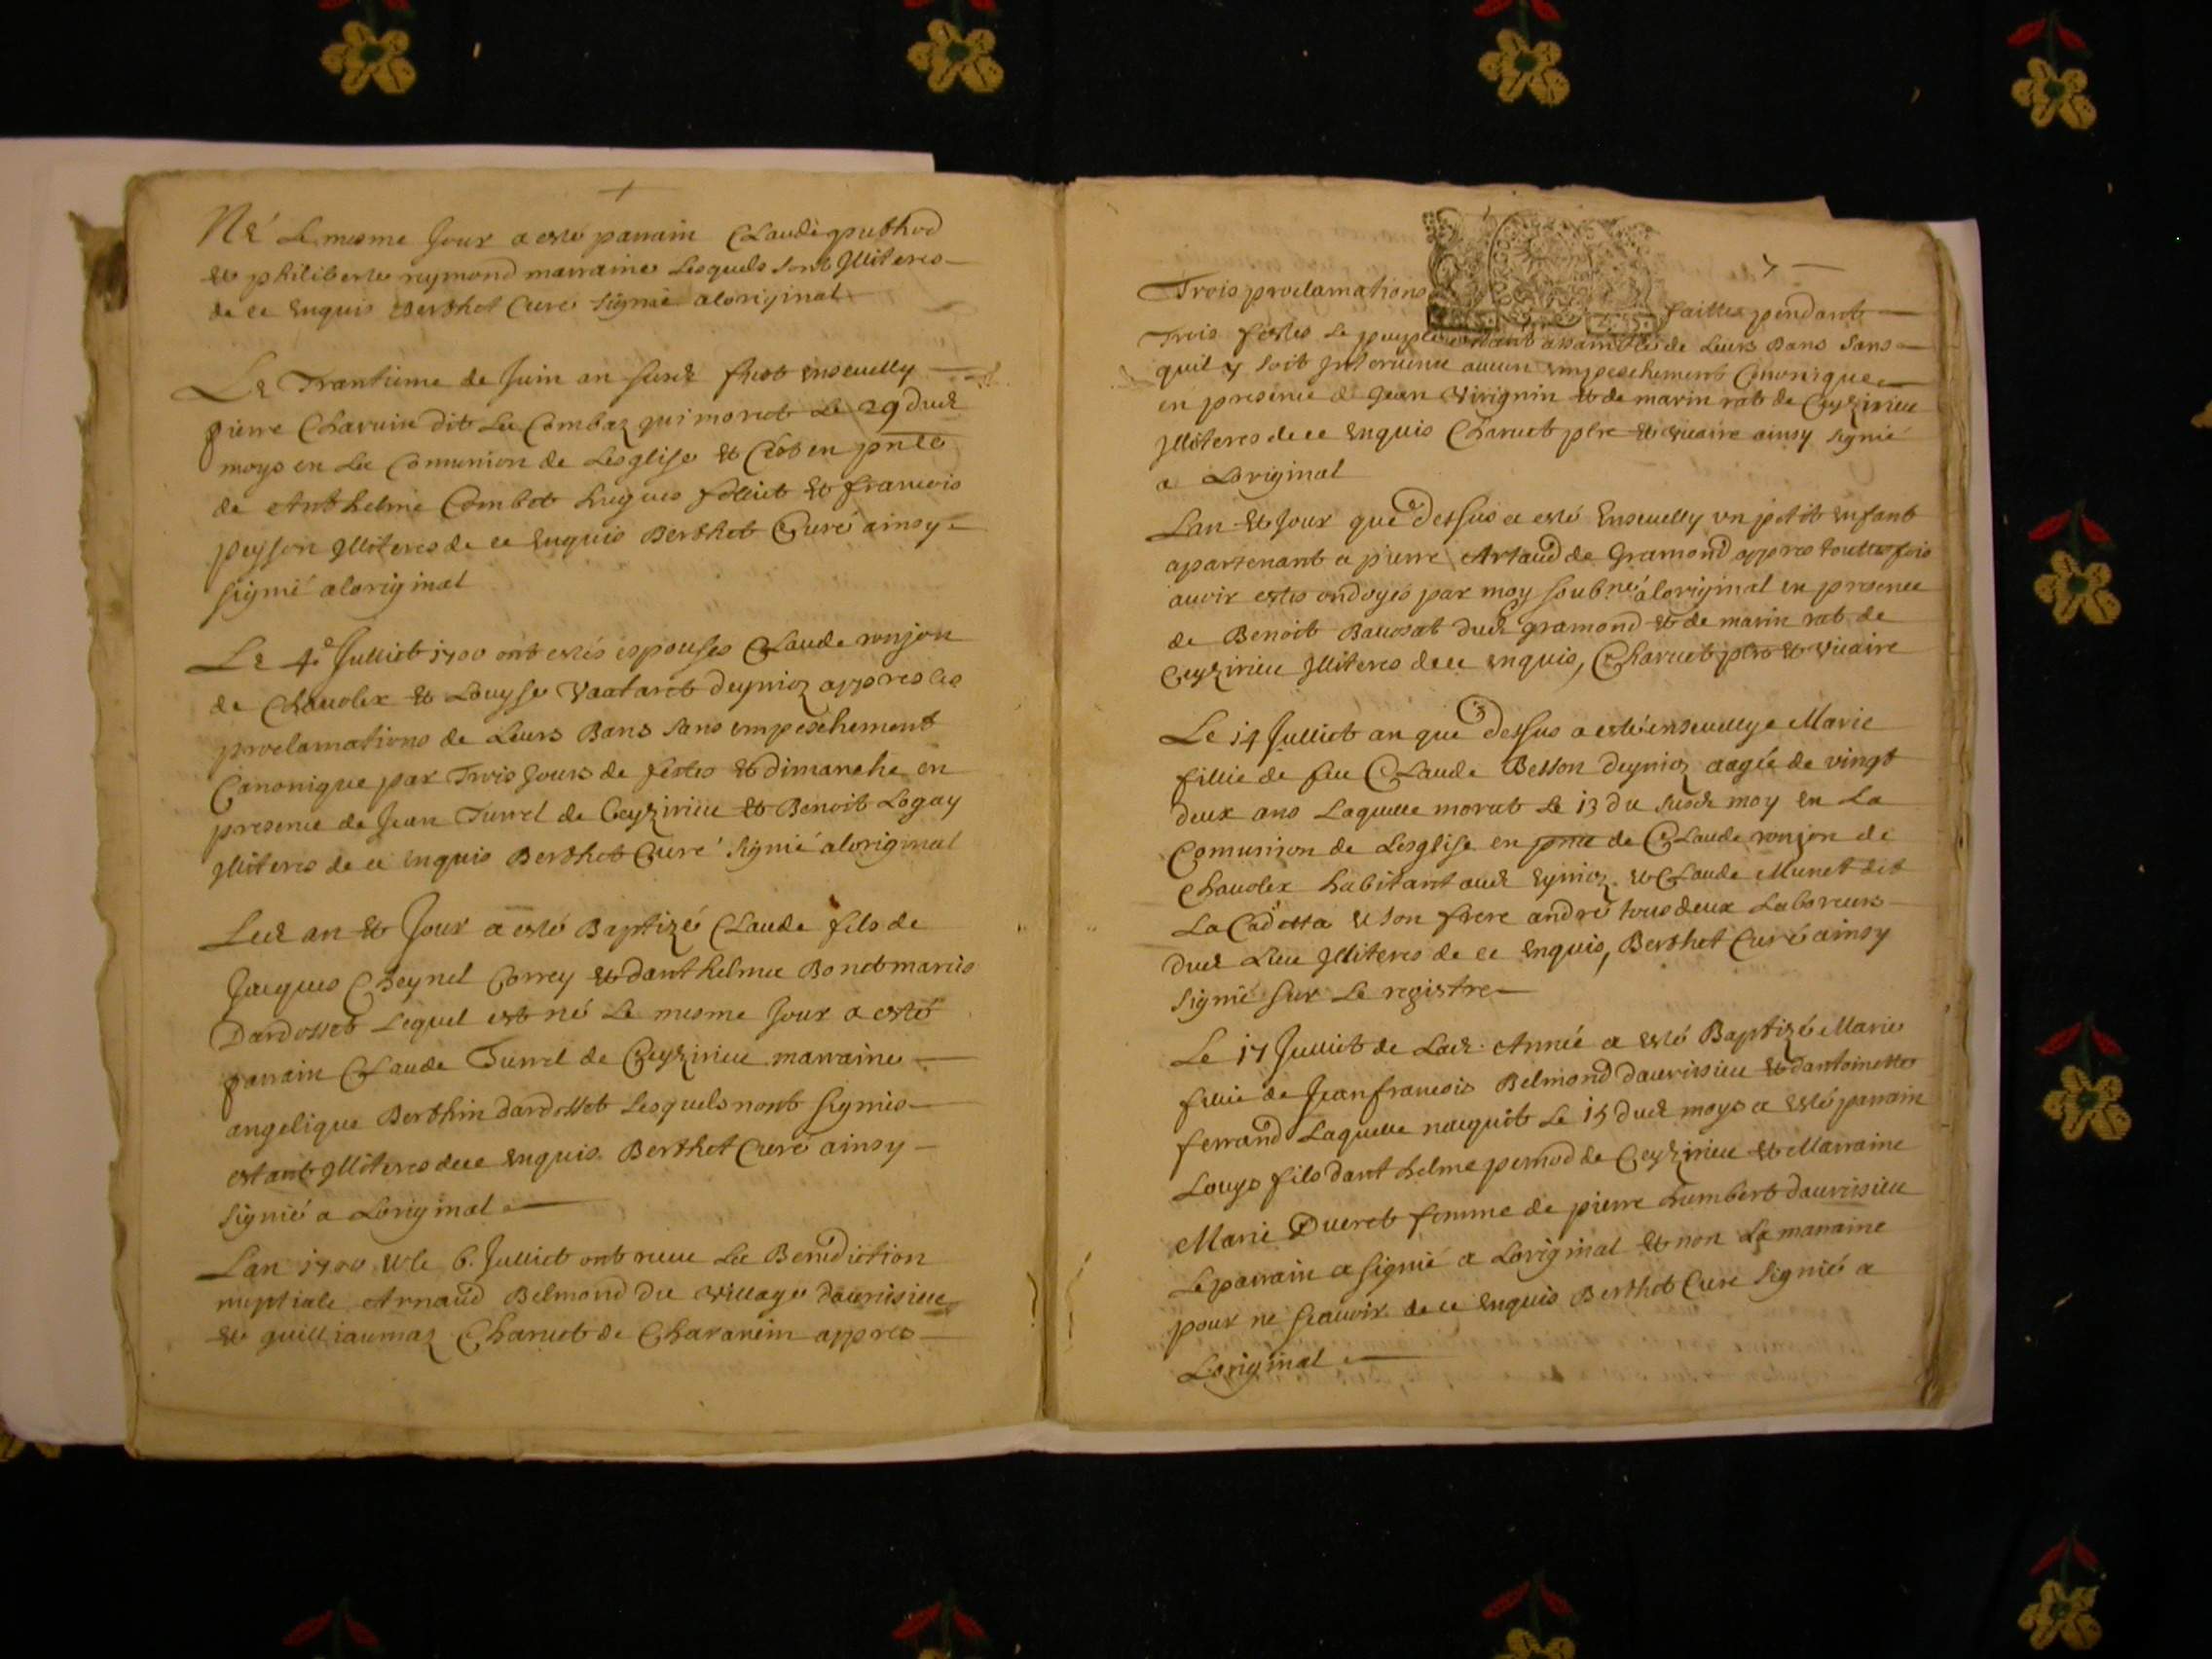 Né Le mesme Jour a esté parrain Claude puthod
et philiberte reymond marraine Lesquels sont Illiteres
de ce Enquis Berthet Curé Signié aloriginal
Le Trantieme de Juin an susd fust ensevelly
pierre Charvin dit La Combaz qui morut Le 29 dud
moys en La Comunion de Lesglise et Cest en pnce
de Anthelme Combet hugues folliet et francois
peysson Illiteres de ce Enquis Berthet Curé ainsy
signié aloriginal
Le 4e Julliet 1700 ont estés espousés Claude ronjon
de Chavolex et Louyse Vaataret deynioz appres les
proclamations de Leurs Bans sans empeschement
Canonique par Trois Jours de festes et dimanche en
presence de Jean Turrel de Ceyzirieu et Benoit Logay
Illiteres de ce enquis Berthet Curé Signié aloriginal
Led an et Jour a esté Baptizé Claude fils de
Jacques Cheynel Correy et danthelmee Bonet mariés
Dardosset Lequel est né Le mesme Jour a esté
parrain Claude Turrel de Ceyzirieu marraine
angelique Berthin dardosset Lesquels nont signiés
estant Illiteres de ce Enquis Berthet Curé ainsy
Signié a Loriginal
Lan 1700 et le 6. Julliet ont receu La Benediction
nuptiale Arnaud Belmond du village davrissieu
et guilliaumaz Charvet de Chavanin appres
7
Trois proclamations faittes pendant
Trois festes Le peuple estant assamblé de Leurs Bans sans
quil y soit Intervenu aucun empeschement Canonique
en presence de Jean Virignin et de marin rat de Ceyzirieu
Illiteres de ce Enquis Charvet ptre et vicaire ainsy signié
a Loriginal
Lan et Jour que dessus a esté Ensevelly un petit enfant
apartenant a pierre Artaud de Gramond appres touttesfois
avoir estes ondoyés par moy soubné aloriginal en presence
de Benoit Bavosat dud gramond et de marin rat de
Ceyzirieu Illiteres de ce enquis, Charvet ptre et Vicaire
Le 14 Julliet an que dessus a esté ensevellye Marie
fillie de feu Claude Besson deynioz aagée de vingt
deux ans Laquelle morut Le 13 du susd moy en La
Comunion de Lesglise en pnce de Claude ronjon de
Chavolex habitant aud eynioz et Claude Munet dit
La Cadetta et son frere andré tous deux Laboreurs
dud Lieu Illiteres de ce Enquis, Berthet Curé ainsy
signié sur Le registre
Le 17 Julliet de Lad. Année a esté Baptizé Marie
fillie de Jean francois Belmond davrissieu et dantoinette
ferrand Laquelle nacquit Le 15 dud moys a esté parrain
Louys fils danthelme pernod de Ceyzirieu et Marraine
Marie Dueret femme de pierre humbert davrissieu
Le parrain a signié a Loriginal et non La marraine
pour ne scavoir de ce Enquis Berthet Curé Signié a
Loriginal